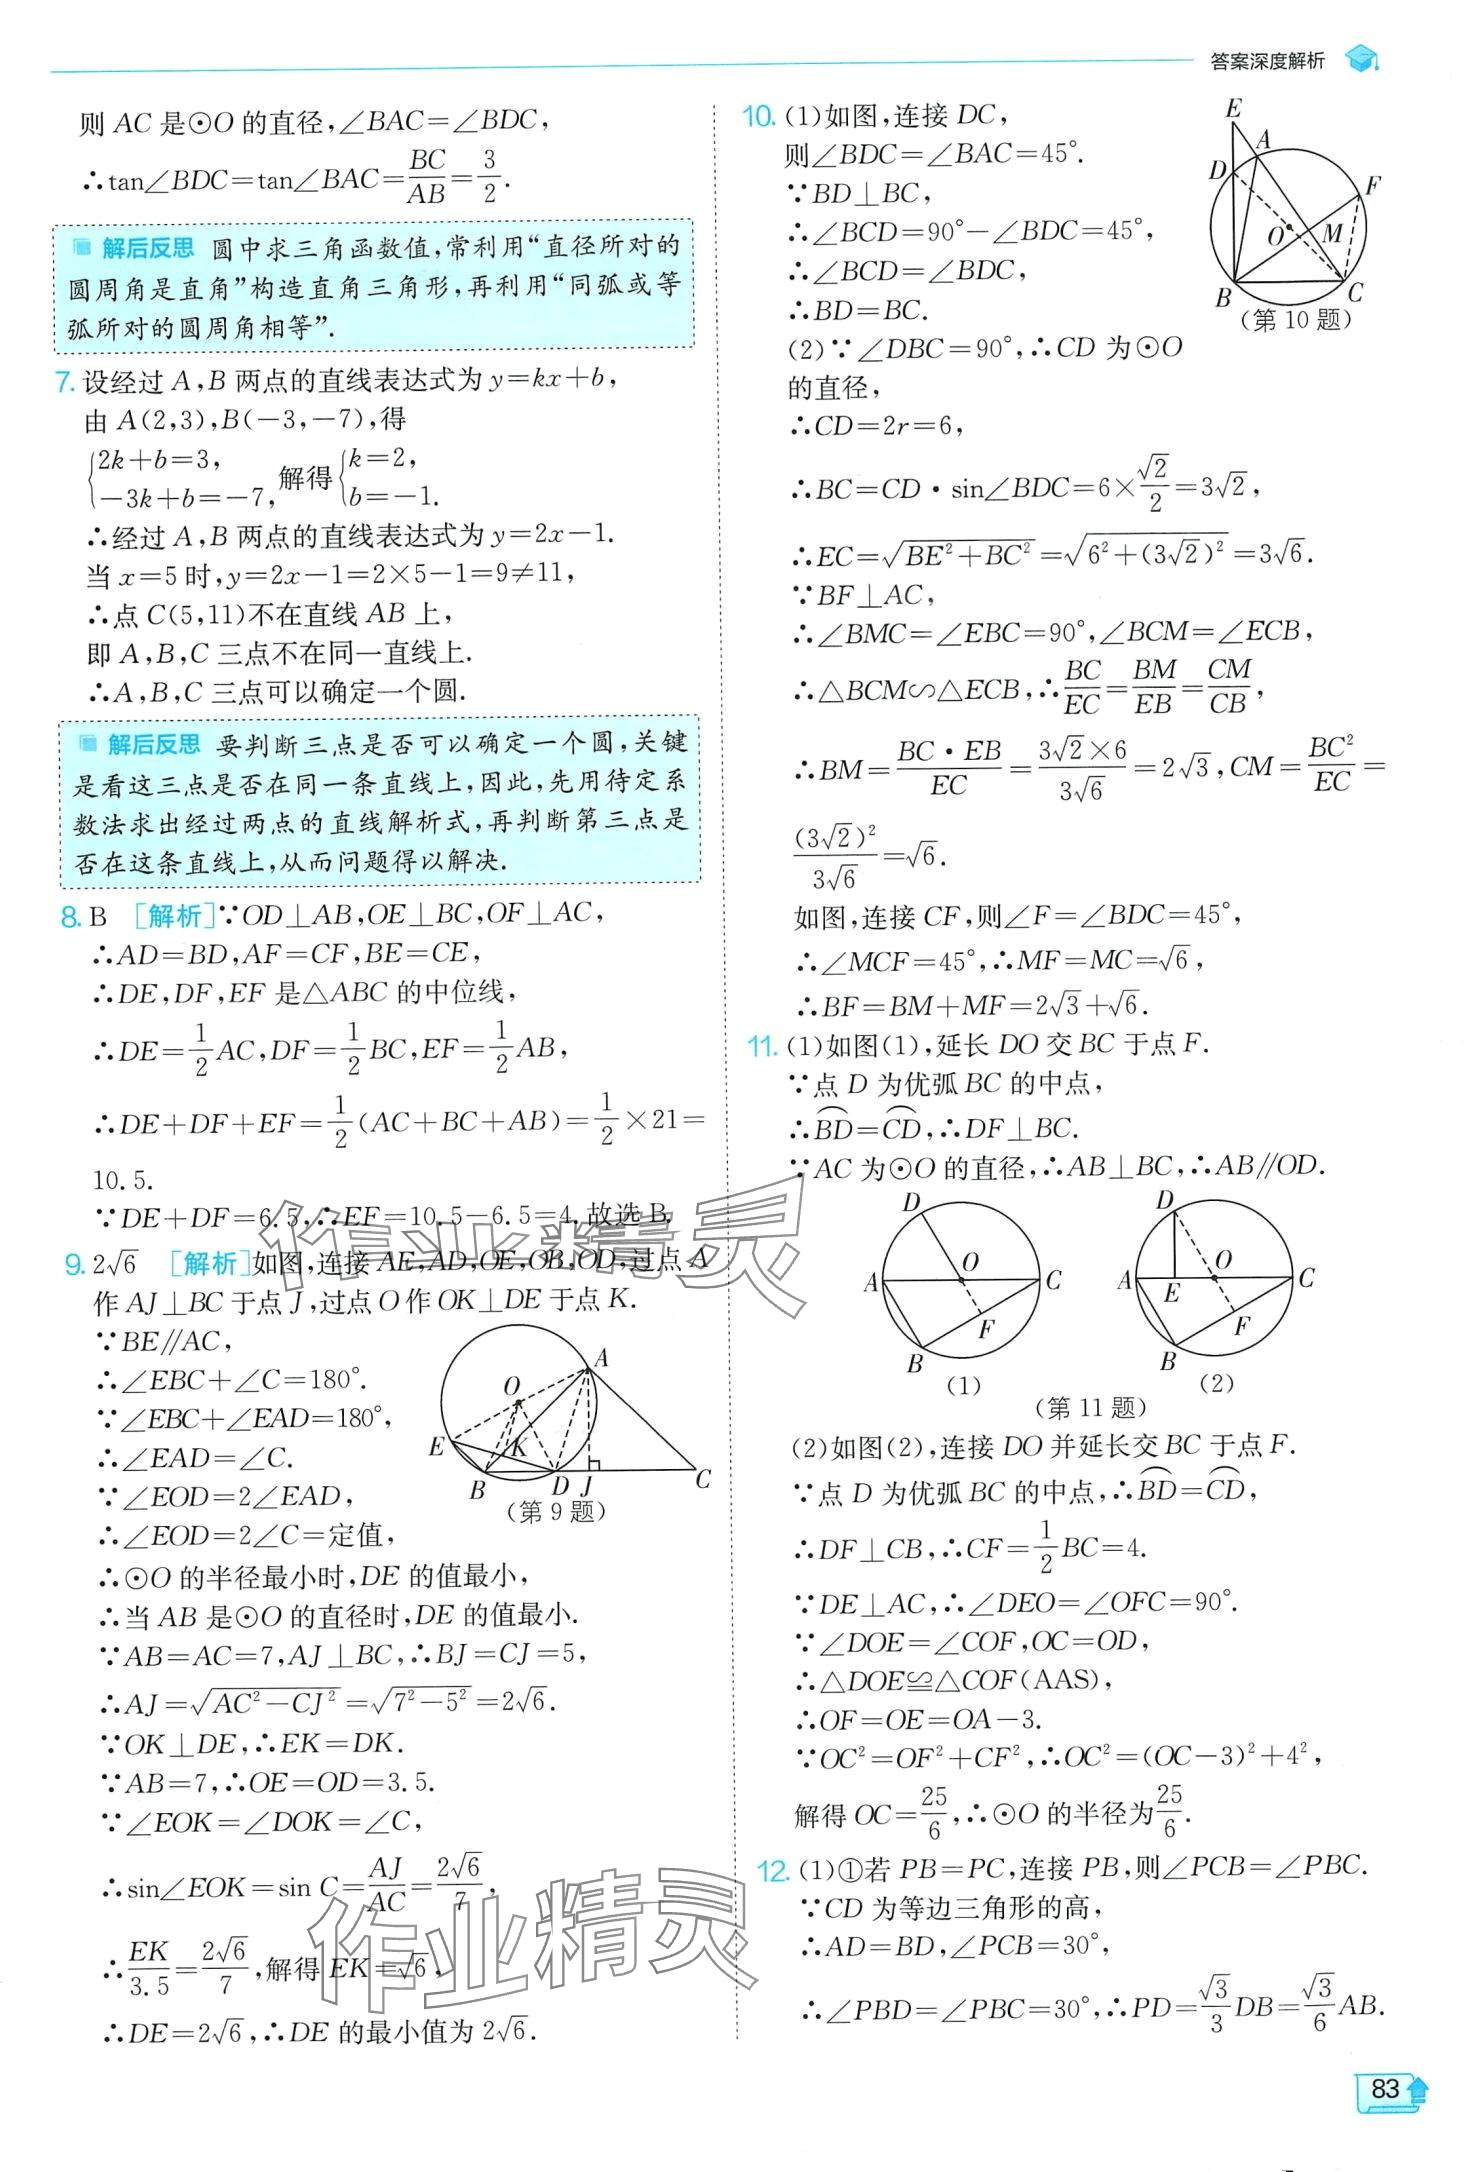 答案深度解析
则 AC 是⊙O 的直径,∠BAC=∠BDC,
∴tan∠BDC=tan∠BAC=BC/AB=3/2.
解后反思 圆中求三角函数值,常利用“直径所对的
圆周角是直角”构造直角三角形,再利用“同弧或等
弧所对的圆周角相等”.
7. 设经过 A,B 两点的直线表达式为 y=kx+b,
由 A(2,3),B(-3,-7),得
{2k+b=3, -3k+b=-7, 解得 {k=2, b=-1.
∴经过 A,B 两点的直线表达式为 y=2x-1.
当 x=5 时,y=2x-1=2×5-1=9≠11,
∴点 C(5,11)不在直线 AB 上,
即 A,B,C 三点不在同一直线上.
∴A,B,C 三点可以确定一个圆.
解后反思 要判断三点是否可以确定一个圆,关键
是看这三点是否在同一条直线上,因此,先用待定系
数法求出经过两点的直线解析式,再判断第三点是
否在这条直线上,从而问题得以解决.
8. B [解析]∵OD⊥AB,OE⊥BC,OF⊥AC,
∴AD=BD,AF=CF,BE=CE,
∴DE,DF,EF 是△ABC 的中位线,
∴DE=1/2AC,DF=1/2BC,EF=1/2AB,
∴DE+DF+EF=1/2(AC+BC+AB)=1/2×21=
10.5.
∵DE+DF=6.5,∴EF=10.5-6.5=4.故选 B.
9. 2√6 [解析]如图,连接 AE,AD,OE,OB,OD,过点 A
作 AJ⊥BC 于点 J,过点 O 作 OK⊥DE 于点 K.
∵BE∥AC,
∴∠EBC+∠C=180°.
∵∠EBC+∠EAD=180°,
∴∠EAD=∠C.
∵∠EOD=2∠EAD,
∴∠EOD=2∠C=定值,
A
O
E
K
B
D
J
C
(第 9 题)
∴⊙O 的半径最小时,DE 的值最小,
∴当 AB 是⊙O 的直径时,DE 的值最小.
∵AB=AC=7,AJ⊥BC,∴BJ=CJ=5,
∴AJ=√(AC²-CJ²)=√(7²-5²)=2√6.
∵OK⊥DE,∴EK=DK.
∵AB=7,∴OE=OD=3.5.
∵∠EOK=∠DOK=∠C,
∴sin∠EOK=sin C=AJ/AC=2√6/7,
∴EK/3.5=2√6/7,解得 EK=√6,
∴DE=2√6,∴DE 的最小值为 2√6.
10. (1)如图,连接 DC,
则∠BDC=∠BAC=45°.
∵BD⊥BC,
∴∠BCD=90°-∠BDC=45°,
∴∠BCD=∠BDC,
∴BD=BC.
E
A
D
F
O
M
B
C
(第 10 题)
(2)∵∠DBC=90°,∴CD 为⊙O
的直径,
∴CD=2r=6,
∴BC=CD·sin∠BDC=6×√2/2=3√2,
∴EC=√(BE²+BC²)=√(6²+(3√2)²)=3√6.
∵BF⊥AC,
∴∠BMC=∠EBC=90°,∠BCM=∠ECB,
∴△BCM∽△ECB,∴BC/EC=BM/EB=CM/CB,
∴BM=BC·EB/EC=3√2×6/3√6=2√3,CM=BC²/EC=
(3√2)²/3√6=√6.
如图,连接 CF,则∠F=∠BDC=45°,
∴∠MCF=45°,∴MF=MC=√6,
∴BF=BM+MF=2√3+√6.
11. (1)如图(1),延长 DO 交 BC 于点 F.
∵点 D 为优弧 BC 的中点,
∴BD⌒=CD⌒,∴DF⊥BC.
∵AC 为⊙O 的直径,∴AB⊥BC,∴AB∥OD.
D
O
A
C
F
B
(1)
D
O
A
E
C
F
B
(2)
(第 11 题)
(2)如图(2),连接 DO 并延长交 BC 于点 F.
∵点 D 为优弧 BC 的中点,∴BD⌒=CD⌒,
∴DF⊥CB,∴CF=1/2BC=4.
∵DE⊥AC,∴∠DEO=∠OFC=90°.
∵∠DOE=∠COF,OC=OD,
∴△DOE≌△COF(AAS),
∴OF=OE=OA-3.
∵OC²=OF²+CF²,∴OC²=(OC-3)²+4²,
解得 OC=25/6,∴⊙O 的半径为25/6.
12. (1)①若 PB=PC,连接 PB,则∠PCB=∠PBC.
∵CD 为等边三角形的高,
∴AD=BD,∠PCB=30°,
∴∠PBD=∠PBC=30°,∴PD=√3/3DB=√3/6AB.
83
作业精灵
作业精灵